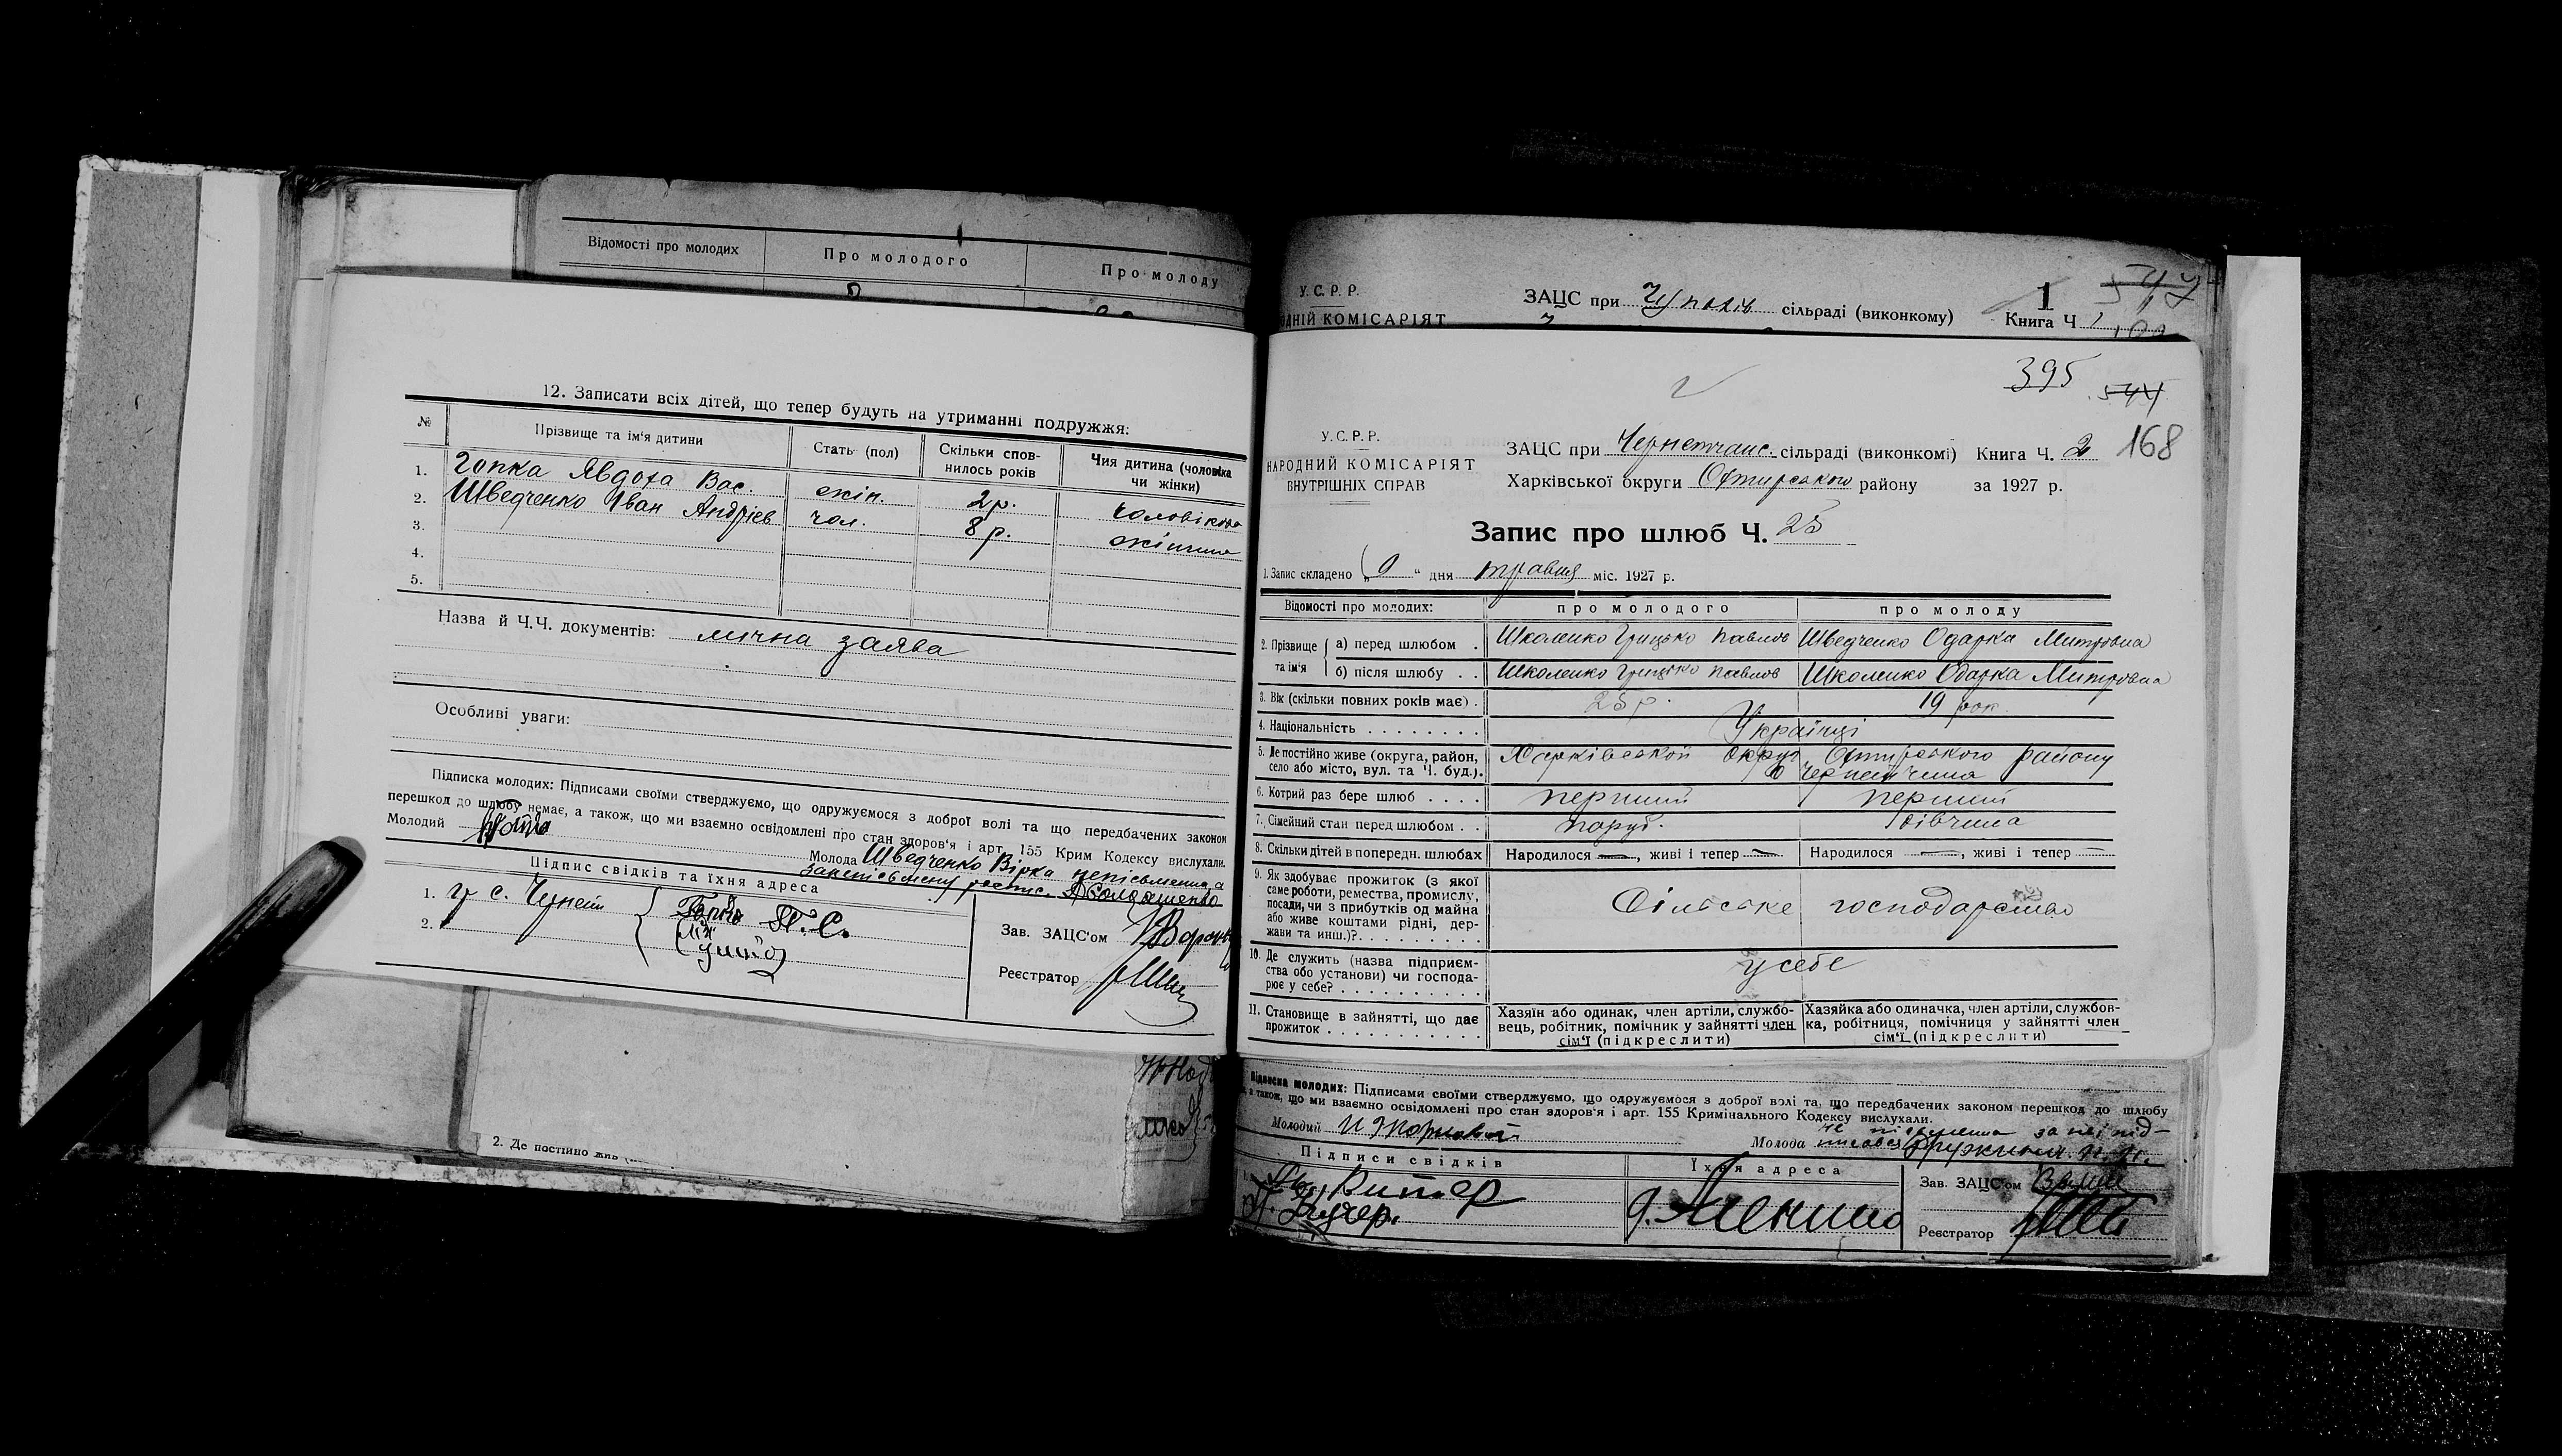 Відомості про молодих
Про молодого
Про молоду
12. Записати всіх дітей, що тепер будуть на утриманні подружжя:
№ Прізвище та ім'я дитини Стать (пол) Скільки сповнилось років Чия дитина (чоловіка чи жінки)
1. Гопка Явдоха Вас. жін. 2 р. чоловікова
2. Шведченко Іван Андрієв чол. 8 р. жінчина
3.
4.
5.
Назва й Ч.Ч. документів: лична заява
Особливі уваги:
Підписка молодих: Підписами своїми стверджуємо, що одружуємося з доброї волі та що передбачених законом
перешкод до шлюбу немає, а також, що ми взаємно освідомлені про стан здоров'я і арт. 155 Крим Кодексу вислухали.
Молодий
Молода Шведченко Вірка неписьменна, а
Підпис свідків та їхня адреса
1. гр с. Чернетч
2.
Зав. ЗАЦС'ом
Реєстратор
2. Де постійно жив
У.С.Р.Р.
ЗАЦС при Чупахів сільраді (виконкому) Книга Ч 1
ДНІЙ КОМІСАРІЯТ
395
544
168
У.С.Р.Р.
НАРОДНИЙ КОМІСАРІЯТ
ВНУТРІШНІХ СПРАВ
ЗАЦС при Чернетчанс. сільраді (виконкомі) Книга Ч. 2
Харківської округи Охтирського району за 1927 р.
Запис про шлюб Ч. 25
1. Запис складено „ “ дня травня міс. 1927 р.
Відомості про молодих: про молодого про молоду
2. Прізвище та ім'я
а) перед шлюбом . Школенко Грицько Павлов Шведченко Одарка Митровна
б) після шлюбу . . Школенко Грицько Павлов Школенко Одарка Митровна
3. Вік (скільки повних років має) . 25 р. 19 рок.
4. Національність . . . . . . . . Українці
5. Де постійно живе (округа, район, Харківської округ Охтирського району
село або місто, вул. та Ч. буд.). с Чернетчина
6. Котрий раз бере шлюб . . . . перший перший
7. Сімейний стан перед шлюбом . . паруб. дівчина
8. Скільки дітей в попередн. шлюбах Народилося —, живі і тепер — Народилося —, живі і тепер —
9. Як здобуває прожиток (з якої
саме роботи, ремества, промислу,
посади, чи з прибутків од майна
або живе коштами рідні, дер-
жави та инш.)? . . . . . . . . . .
Сільське господарство
10. Де служить (назва підприєм-
ства або установи) чи господа-
рює у себе? . . . . . . . . . . .
у себе
11. Становище в зайнятті, що дає
прожиток . . . . . . . . . . . .
Хазяїн або одинак, член артілі, службо-
вець, робітник, помічник у зайнятті член
сім'ї (підкреслити)
Хазяйка або одиначка, член артілі, службов-
ка, робітниця, помічниця у зайнятті член
сім'ї (підкреслити)
Підписка молодих: Підписами своїми стверджуємо, що одружуємося з доброї волі та, що передбачених законом перешкод до шлюбу
а також, що ми взаємно освідомлені про стан здоров'я і арт. 155 Кримінального Кодексу вислухали.
Молодий
Молода
Підписи свідків
Їхня адреса
Зав. ЗАЦС'ом
Реєстратор